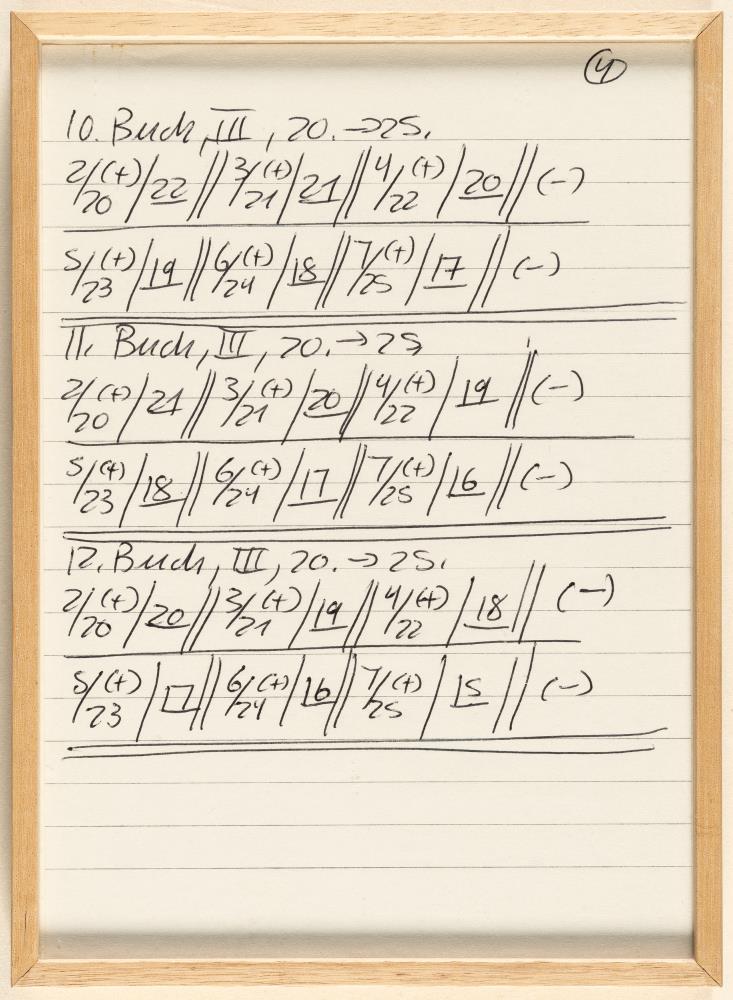 4
10. Buch, III, 20. → 25.
2/(+)/20/22//3/(+)/21/21//4/(+)/22/20//(-)
5/(+)/23/19//6/(+)/24/18//7/(+)/25/17//(-)
11. Buch, III, 20. → 25
2/(+)/20/21//3/(+)/21/20//4/(+)/22/19//(-)
5/(+)/23/18//6/(+)/24/17//7/(+)/25/16//(-)
12. Buch, III, 20. → 25.
2/(+)/20/20//3/(+)/21/19//4/(+)/22/18//(-)
5/(+)/23/17//6/(+)/24/16//7/(+)/25/15//(-)